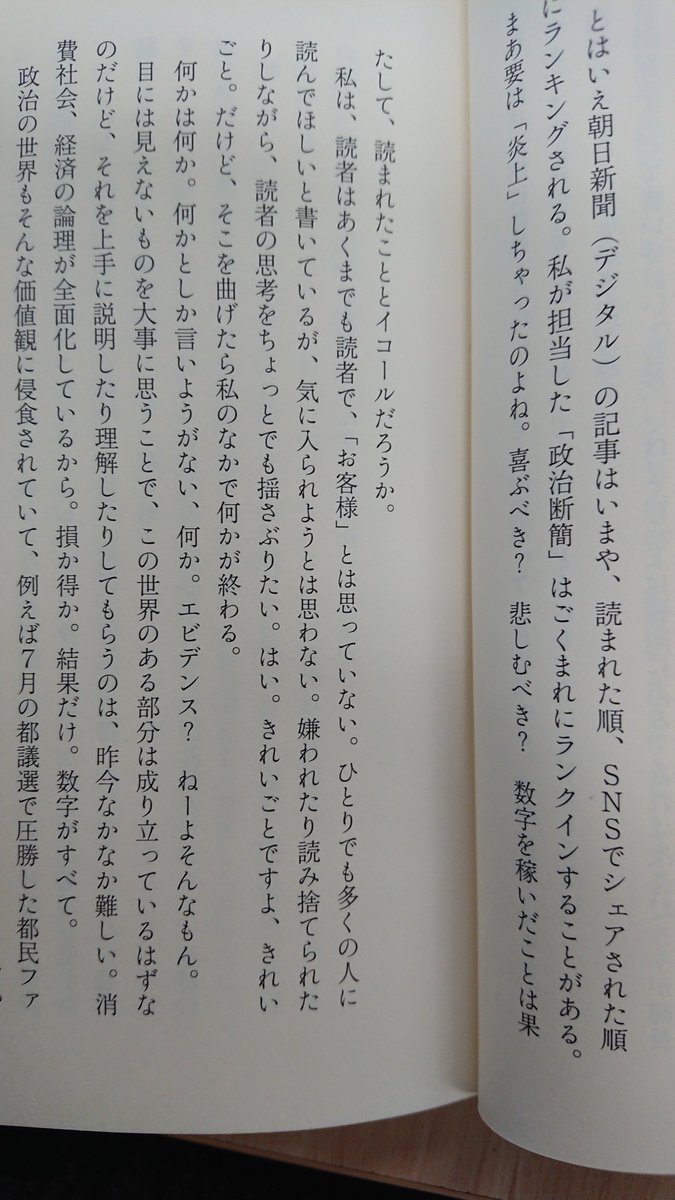 とはいえ朝日新聞（デジタル）の記事はいまや、読まれた順、SNSでシェアされた順
にランキングされる。私が担当した「政治断簡」はごくまれにランクインすることがある。
まあ要は「炎上」しちゃったのよね。喜ぶべき？　悲しむべき？　数字を稼いだことは果
たして、読まれたこととイコールだろうか。
私は、読者はあくまでも読者で、「お客様」とは思っていない。ひとりでも多くの人に
読んでほしいと書いているが、気に入られようとは思わない。嫌われたり読み捨てられた
りしながら、読者の思考をちょっとでも揺さぶりたい。はい。きれいごとですよ、きれい
ごと。だけど、そこを曲げたら私のなかで何かが終わる。
何かは何か。何かとしか言いようがない、何か。エビデンス？　ねーよそんなもん。
目には見えないものを大事に思うことで、この世界のある部分は成り立っているはずな
のだけど、それを上手に説明したり理解したりしてもらうのは、昨今なかなか難しい。消
費社会、経済の論理が全面化しているから。損か得か。結果だけ。数字がすべて。
政治の世界もそんな価値観に侵食されていて、例えば7月の都議選で圧勝した都民ファ